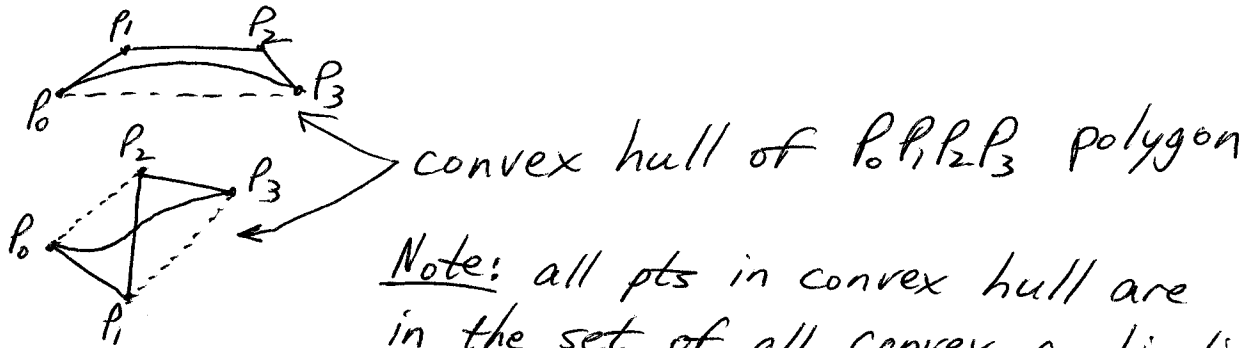 P₁ P₂
P₀ P₃
convex hull of P₀P₁P₂P₃ polygon
P₂
P₃
P₀
P₁
Note: all pts in convex hull are
in the set of all convex